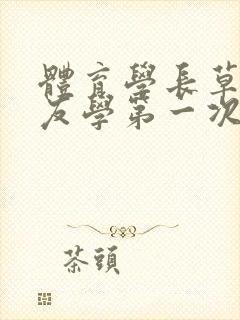 體育學長草
友學第一次
茶頭